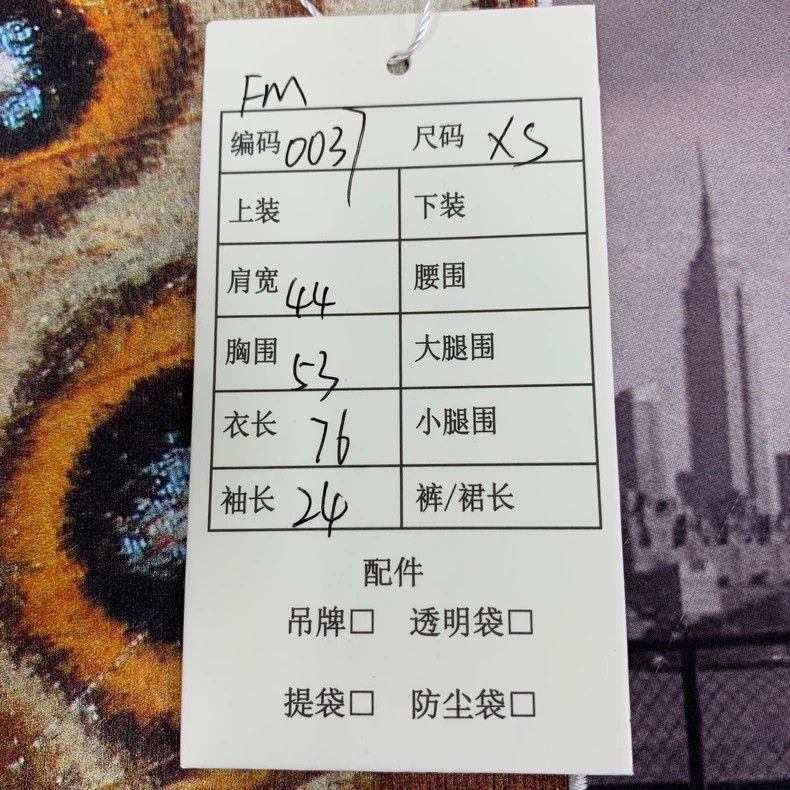 FM
编码 0037 尺码 XS
上装 下装
肩宽 44 腰围
胸围 53 大腿围
衣长 76 小腿围
袖长 24 裤/裙长
配件
吊牌□ 透明袋□
提袋□ 防尘袋□